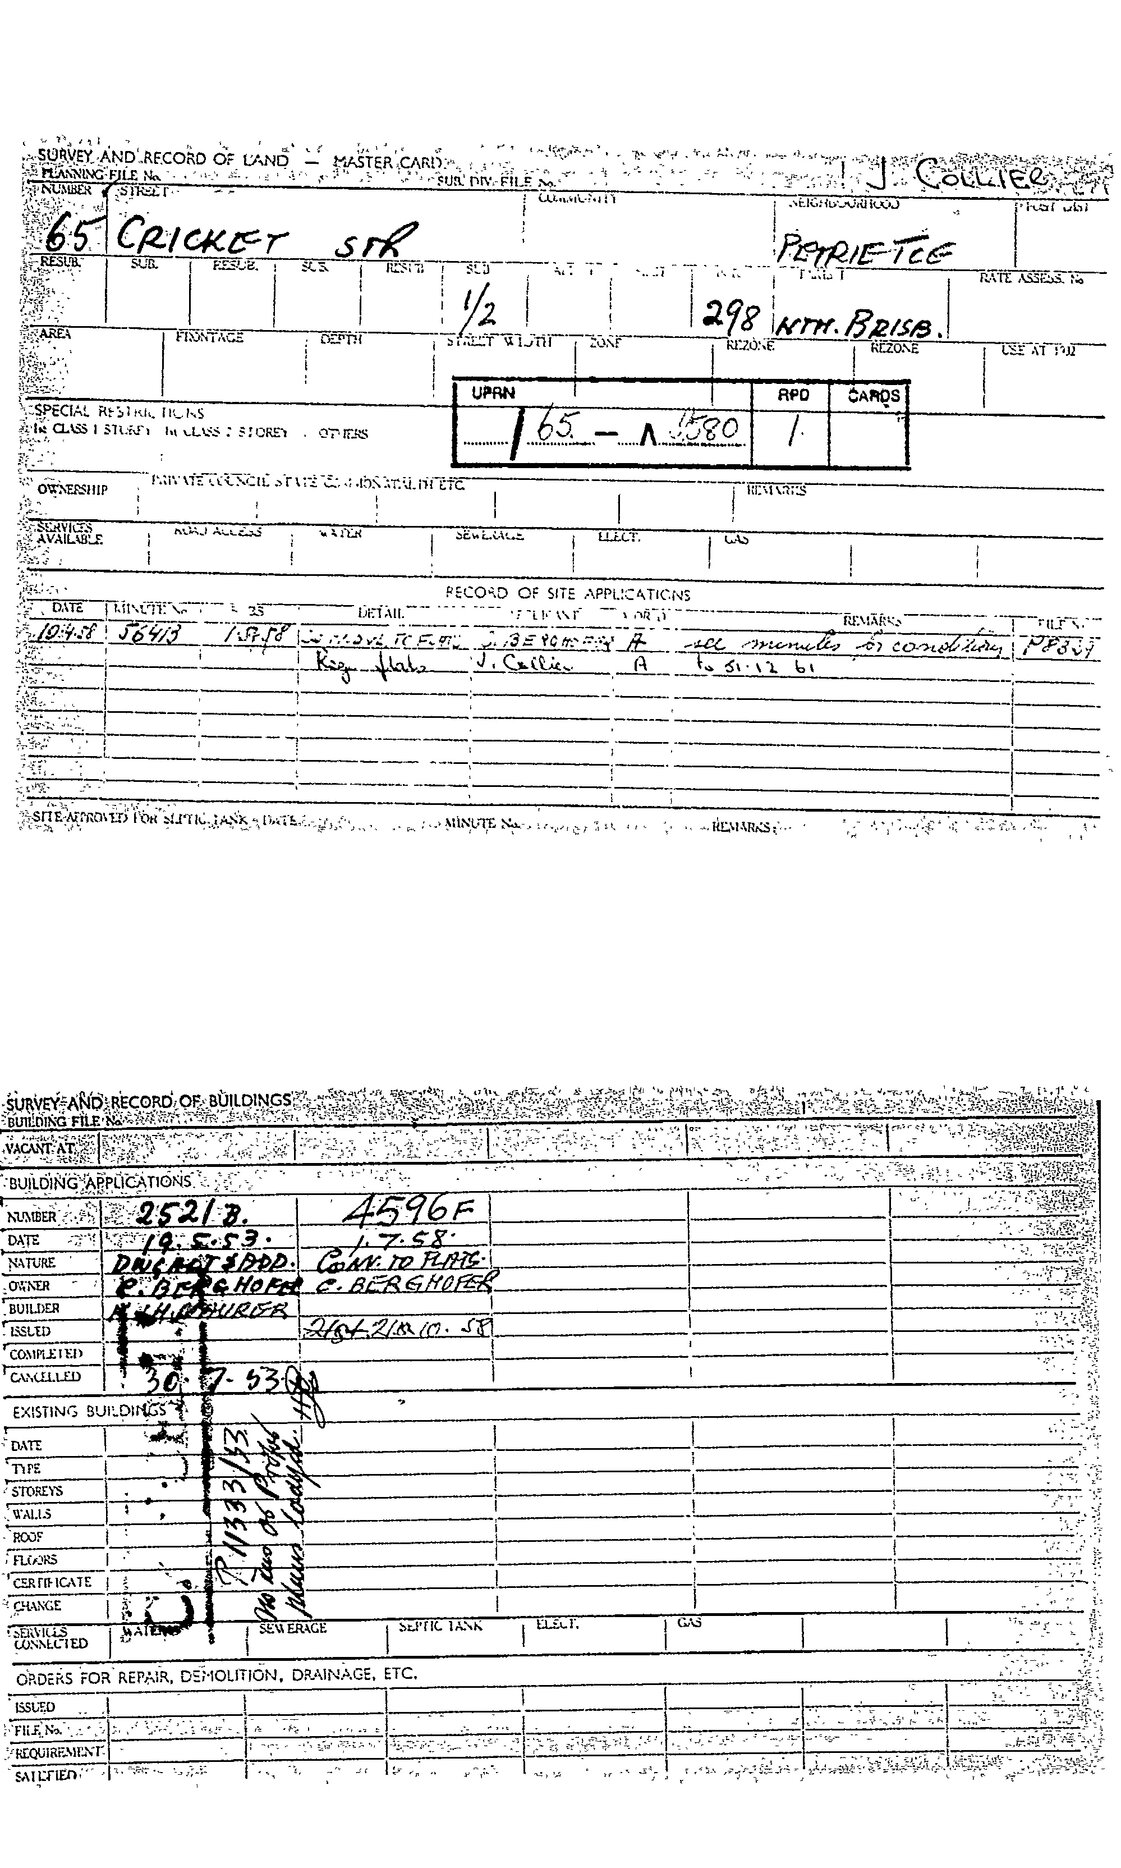 SURVEY AND RECORD OF LAND — MASTER CARD
J. COLLIER
PLANNING FILE No. SUB. DIV. FILE No.
NUMBER STREET COMMUNITY NEIGHBOURHOOD POST DIST
65 CRICKET STR PETRIE TCE
RESUB. SUB. RESUB. SUB. RESUB SUB PARISH RATE ASSESS. No
1/2 298 NTH. BRISB.
AREA FRONTAGE DEPTH STREET WIDTH ZONE REZONE REZONE USE AT
UPRN RPD CARDS
65 — 1
SPECIAL RESTRICTIONS
In CLASS 1 STOREY In CLASS 2 STOREY OTHERS
OWNERSHIP PRIVATE COUNCIL STATE COMMONWEALTH ETC. REMARKS
SERVICES AVAILABLE ROAD ACCESS WATER SEWERAGE ELECT. GAS
RECORD OF SITE APPLICATIONS
DATE MINUTE No DETAIL APPLICANT REMARKS FILE No
10.4.58 56413 TO FLATS BERGHOFER A see minutes for conditions
flats J. Collier A to 31.12 61
SITE APPROVED FOR SEPTIC TANK - DATE MINUTE No. REMARKS
SURVEY AND RECORD OF BUILDINGS
BUILDING FILE No.
VACANT AT
BUILDING APPLICATIONS
NUMBER 2521 B. 4596F
DATE 19.5.53. 1.7.58.
NATURE ADD. CONV. TO FLATS.
OWNER C. BERGHOFER C. BERGHOFER
BUILDER
ISSUED 10.58
COMPLETED
CANCELLED 30.7.53
EXISTING BUILDINGS
DATE
TYPE
STOREYS
WALLS
ROOF
FLOORS
CERTIFICATE
CHANGE
11333/53
plans lodged
SERVICES CONNECTED WATER SEWERAGE SEPTIC TANK ELECT. GAS
ORDERS FOR REPAIR, DEMOLITION, DRAINAGE, ETC.
ISSUED
FILE No.
REQUIREMENT
SATISFIED